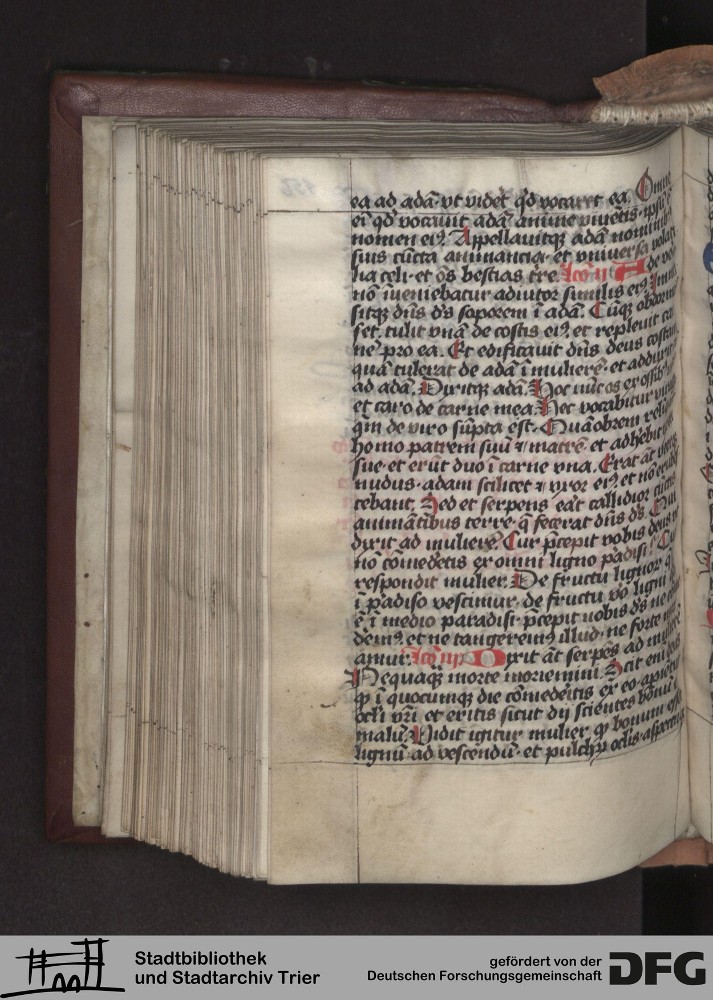 ea ad adã vt videt qd vocaret ea. Omne
ei qd vocavit adã anime viventis ipsu
nomen ei9. Appellavitq adã nominib
suis cũcta animancia et vniversa volat
lia celi et oẽs bestias tre. lco ii Ade vo
nõ ĩveniebatur adiutor similis ei9. Inmi
sitq dñs ds soporem ĩ adã. Cũq obdorm
set. tulit vnã de costis ei9 et replevit ca
nẽ pro ea. Et edificavit dñs deus costam
quã tulerat de adã ĩ mulierẽ et adduxit
ad adã. Dixitq adã. Hoc nũc os ex ossib
et caro de carne mea. Hec vocabitur
qm de viro sũpta est. Quãobrem relĩq
homo patrem suũ et matrẽ et adherebit
sue et erũt duo ĩ carne vna. Erat aũt
nudus adam scilicet et vxor ei9 et nõ erube
cebant. Sed et serpens erat callidior cũctis
animãtibus terre q fecerat dñs ds. Qui
dixit ad mulierẽ. Cur pcepit vobis deus
nõ cõmedetis ex omni ligno padisi? Cui
respondit mulier. De fructu lignor q
ĩ padiso vescimur de fructu vo ligni
ẽ ĩ medio paradisi pcepit nobis ds ne
dem9 et ne tangerem9 illud ne forte
amur. lco iii Dixit aũt serpẽs ad mulierẽ
Nequaq morte moriemini. Scit eni
q ĩ quocumq die cõmedetis ex eo apiẽtur
ocli vri et eritis sicut dij scientes bonũ
malũ. Vidit igitur mulier q bonum esset
lignũ ad vescendũ et pulchr oclis aspectuq
Stadtbibliothek
und Stadtarchiv Trier
gefördert von der
Deutschen Forschungsgemeinschaft
DFG